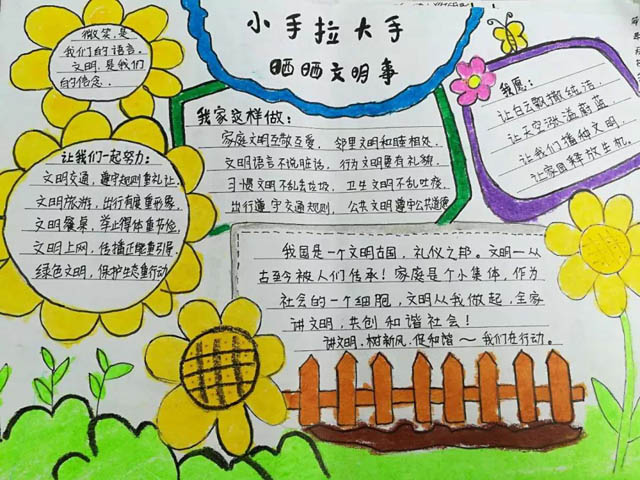 小手拉大手
晒晒文明事
微笑,是
我们的语言.
文明,是我们
的信念.
我家这样做:
家庭文明互敬互爱. 邻里文明和睦相处.
文明语言不说脏话, 行为文明更有礼貌.
习惯文明不乱丢垃圾. 卫生文明不乱吐痰.
出行遵守交通规则, 公共文明遵守公共道德
我愿:
让白云飘撒纯洁.
让天空涨溢蔚蓝.
让我们播种文明.
让家园释放生机.
让我们一起努力:
文明交通,遵守规则重礼让.
文明旅游,出行有度重形象.
文明餐桌,举止得体重节俭,
文明上网,传播正能重引导.
绿色文明,保护生态重行动.
我国是一个文明古国,礼仪之邦。文明一从
古至今被人们传承!家庭是个小集体,作为
社会的一个细胞,文明从我做起,全家
讲文明,共创和谐社会!
讲文明,树新风,促和谐~我们在行动。